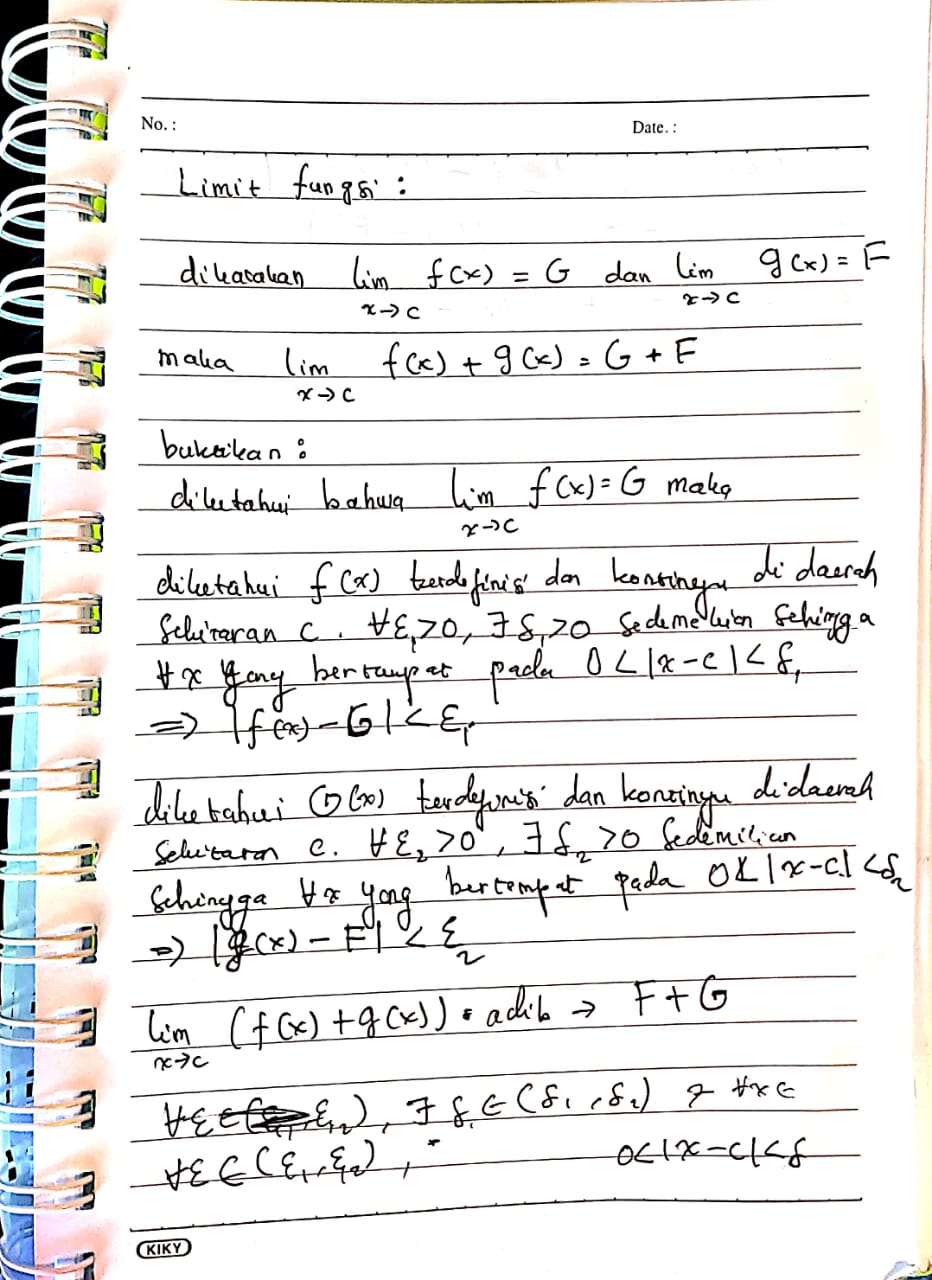 No. :
Date. :
Limit fungsi :
dikatakan lim f(x) = G dan lim g(x) = F
x→c x→c
maka lim f(x) + g(x) = G + F
x→c
buktikan :
diketahui bahwa lim f(x) = G maka
x→c
diketahui f(x) terdefinisi dan kontinyu di daerah
sekitaran c. ∀ε₁>0, ∃ δ₁>0 sedemikian sehingga
∀x yang bertempat pada 0<|x-c|<δ₁
=> |f(x)-G|<ε₁
diketahui G(x) terdefinisi dan kontinyu didaerah
sekitaran c. ∀ε₂>0, ∃δ₂>0 sedemikian
sehingga ∀x yang bertempat pada 0<|x-c|<δ₂
=> |g(x)-F|<ε₂
lim (f(x)+g(x)) = adib → F+G
x→c
∀ε ε₂), ∃ δ ∈ (δ₁, δ₂) ∋ ∀x∈
∀ε ∈ (ε₁, ε₂), 0<|x-c|<δ
KIKY